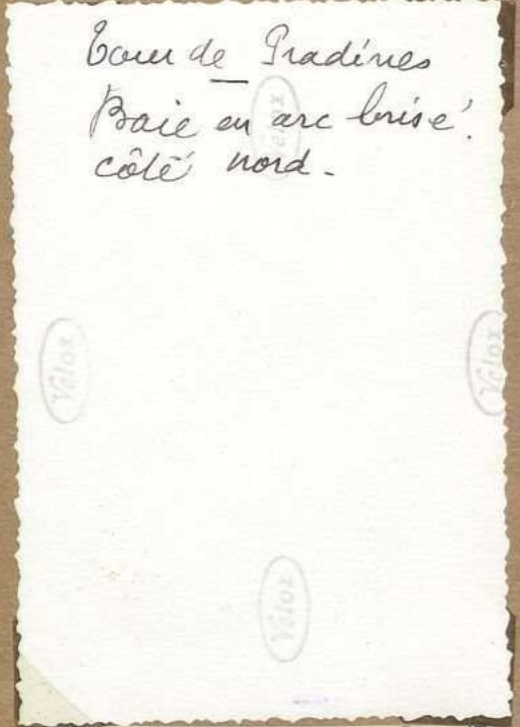 Tour de Pradines
Baie en arc brisé.
côté nord.
Vélox
Vélox
Vélox
Vélox